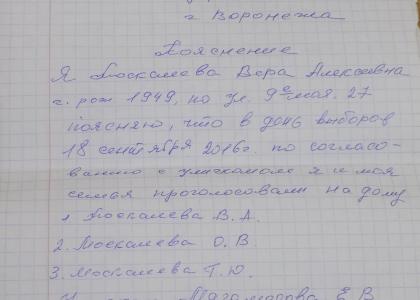 г Воронежа
Пояснение
Я Москалева Вера Алексеевна
г. рож 1949, по ул. 9е мая. 27
поясняю, что в день выборов
18 сентября 2016г. по согласо-
ванию с участком я и моя
семья проголосовали на дому
1 Москалева В. А.
2. Москалева О. В.
3. Москалева Т. Ю.
Е В